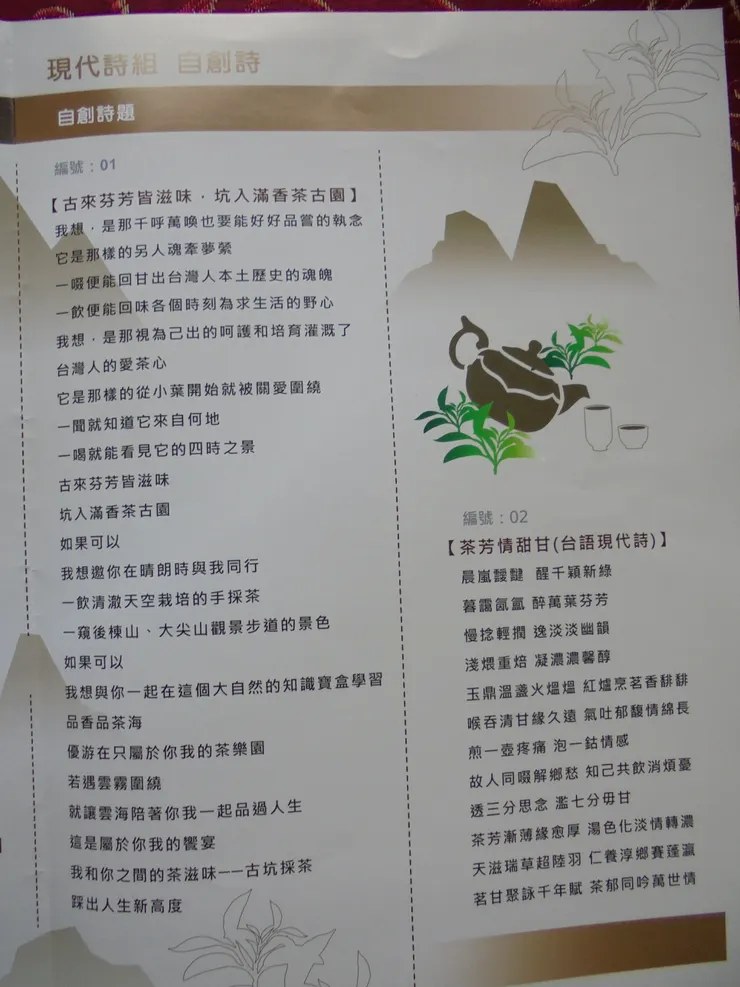 現代詩組 自創詩
自創詩題
編號：01
【古來芬芳皆滋味，坑入滿香茶古園】
我想，是那千呼萬喚也要能好好品嘗的執念
它是那樣的另人魂牽夢縈
一啜便能回甘出台灣人本土歷史的魂魄
一飲便能回味各個時刻為求生活的野心
我想，是那視為己出的呵護和培育灌溉了
台灣人的愛茶心
它是那樣的從小葉開始就被關愛圍繞
一聞就知道它來自何地
一喝就能看見它的四時之景
古來芬芳皆滋味
坑入滿香茶古園
如果可以
我想邀你在晴朗時與我同行
一飲清澈天空栽培的手採茶
一窺後棟山、大尖山觀景步道的景色
如果可以
我想與你一起在這個大自然的知識寶盒學習
品香品茶海
優游在只屬於你我的茶樂園
若遇雲霧圍繞
就讓雲海陪著你我一起品過人生
這是屬於你我的饗宴
我和你之間的茶滋味——古坑採茶
踩出人生新高度
編號：02
【茶芳情甜甘(台語現代詩)】
晨嵐靉靆 醒千穎新綠
暮靄氤氳 醉萬葉芬芳
慢捻輕撋 逸淡淡幽韻
淺煨重焙 凝濃濃馨醇
玉鼎溫盞火熅熅 紅爐烹茗香馡馡
喉吞清甘緣久遠 氣吐郁馥情綿長
煎一壺疼痛 泡一鈷情感
故人同啜解鄉愁 知己共飲消煩憂
透三分思念 濫七分毋甘
茶芳漸薄緣愈厚 湯色化淡情轉濃
天滋瑞草超陸羽 仁養淳鄉賽蓬瀛
茗甘聚詠千年賦 茶郁同吟萬世情